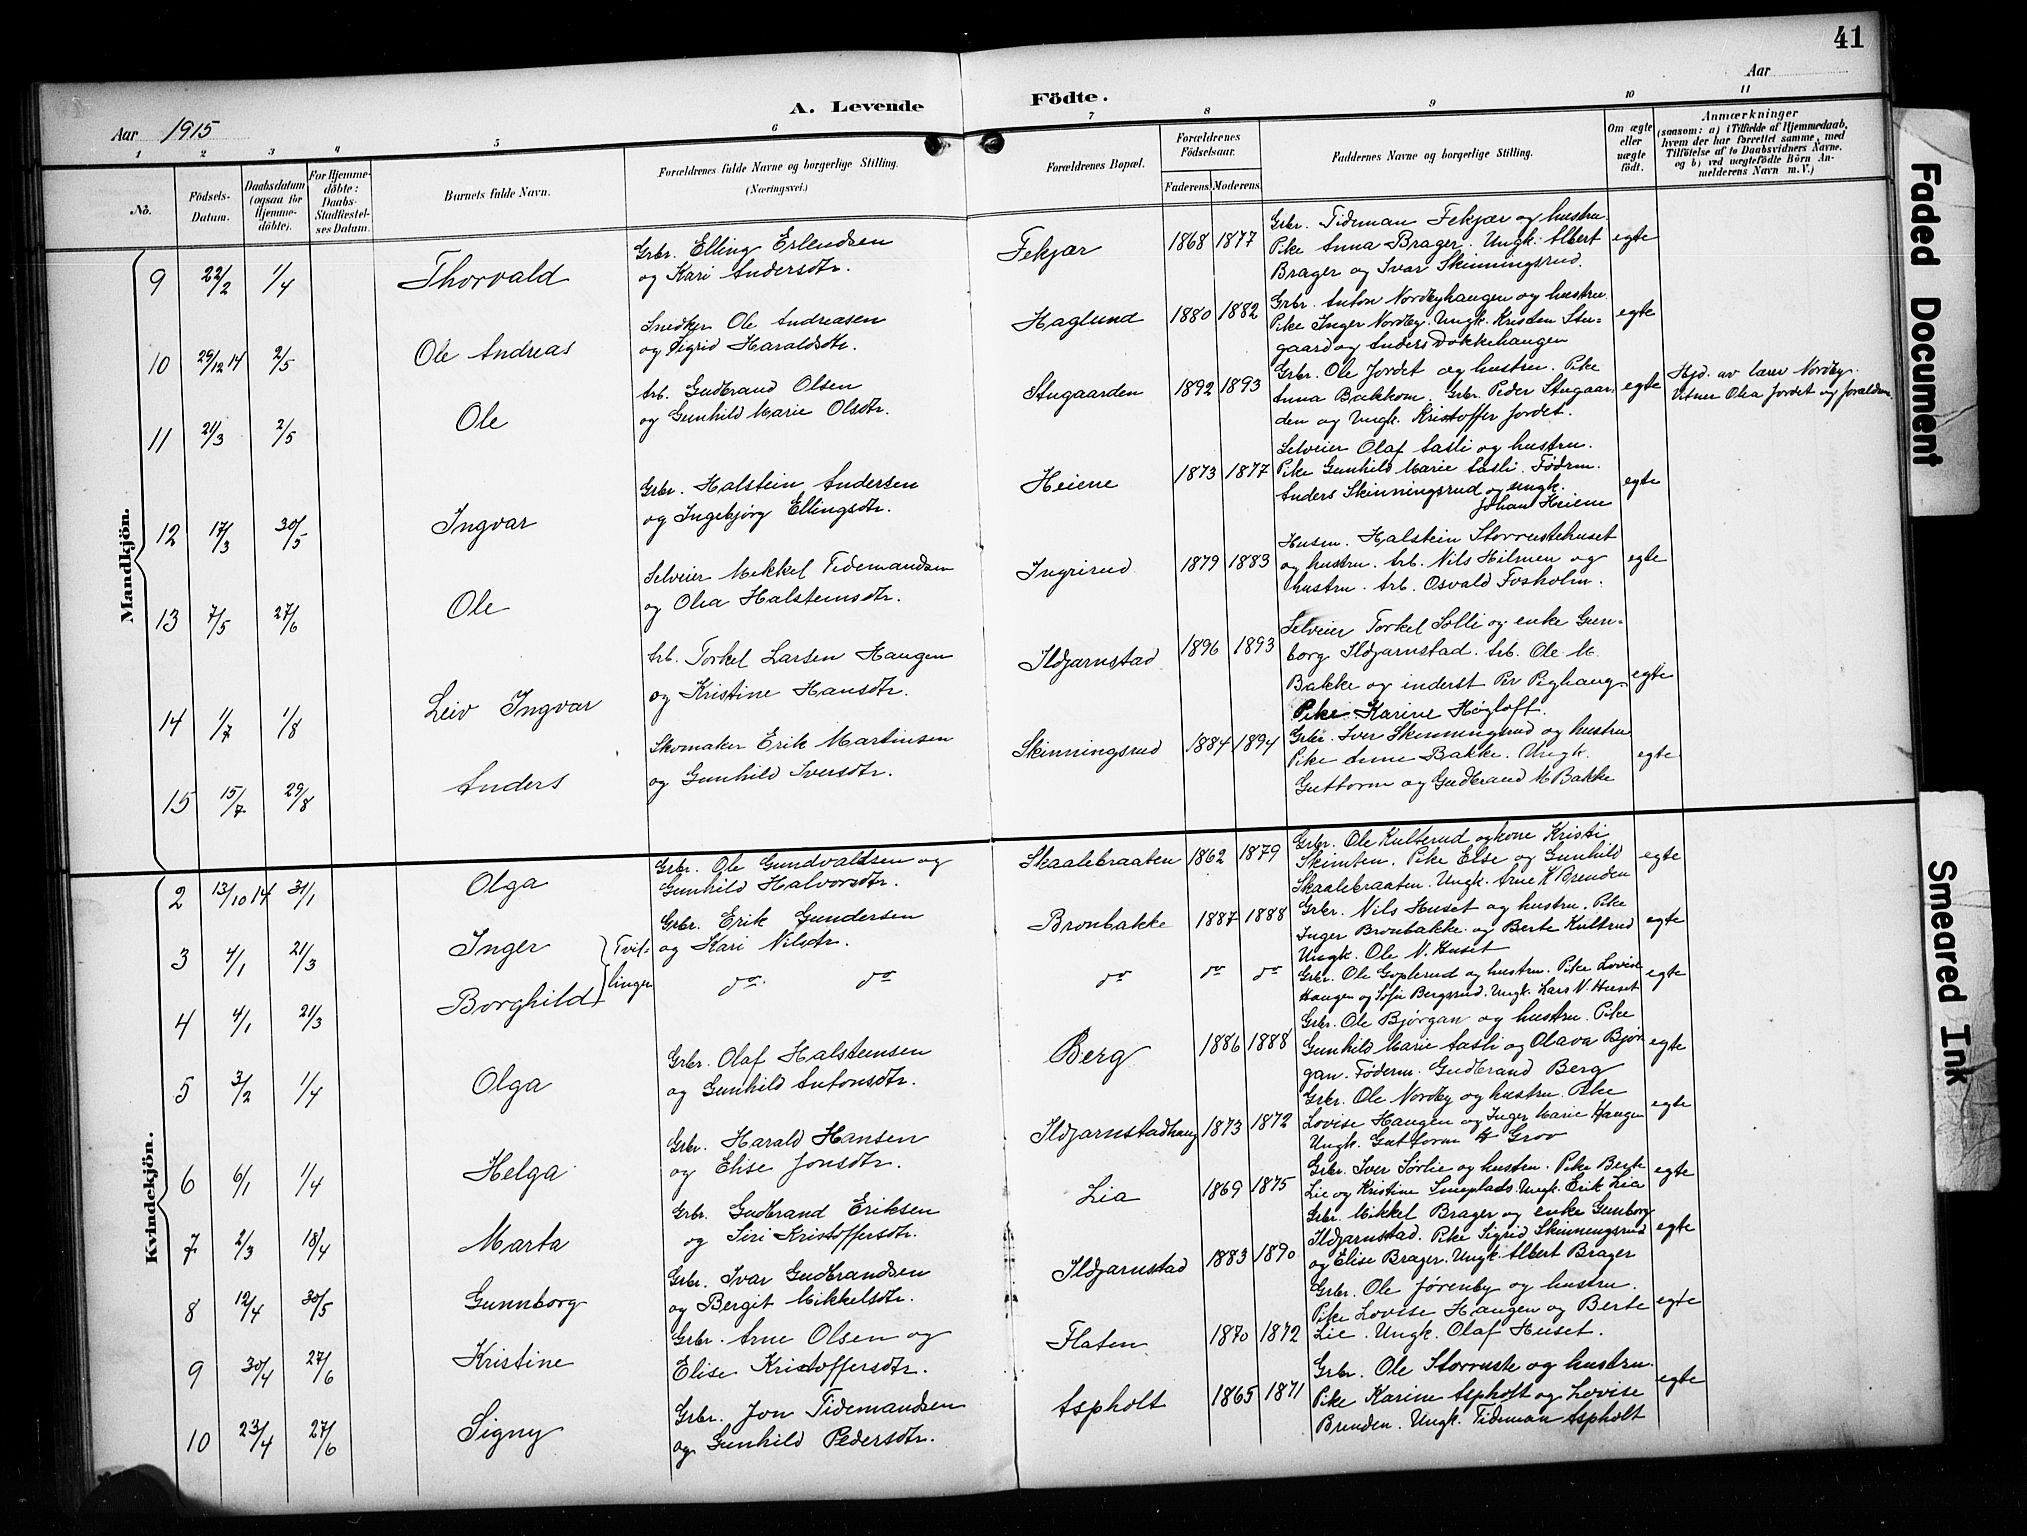 41
Aar 1915
A. Levende Födte.
Aar
1 2 3 4 5 6 7 8 9 10 11
No.
Födsels-Datum.
Daabsdatum (ogsaa for Hjemme-döbte).
For Hjemme-döbte: Daabs-Stadfæstel-ses Datum.
Barnets fulde Navn.
Forældrenes fulde Navne og borgerlige Stilling.
(Næringsvei.)
Forældrenes Bopæl.
Forældrenes Födselsaar.
Faderens. Moderens.
Faddernes Navne og borgerlige Stilling.
Om ægte eller uægte födt.
Anmærkninger
(saasom: a) i Tilfælde af Hjemmedaab, hvem der har forrettet samme, med Tilföielse af to Daabsvidners Navne, og b) ved uægtefödte Börn An-melderens Navn m. V.)
Mandkjön.
9 22/2 1/4 Thorvald
Grbr. Elling Erlendsen
og Kari Andersdtr.
Fekjær 1868 1877
Grbr. Tideman Fekjær og hustru.
Pike Anna Brager. Ungk. Albert
Brager og Ivar Skinningsrud.
egte
10 29/12 14 2/5 Ole Andreas
Snedker Ole Andreasen
og Sigrid Haraldsdtr.
Haglund 1880 1882
Grbr. Anton Nordbyhaugen og hustru.
Pike Inger Nordby. Ungk. Kristen Stu-
gaard og Anders Dokkehaugen
egte
11 21/3 2/5 Ole
Arb. Gudbrand Olsen
og Gunhild Marie Olsdtr.
Stugaarden 1892 1893
Grbr. Ole Jordet og hustru. Pike
Anna Bakkom. Grbr. Peder Stugaar-
den og Ungk. Kristoffer Jordet.
egte
Hjd. av lærer Nordby.
Vitner Olea Jordet og
12 17/3 30/5 Ingvar
Grbr. Halstein Andersen
og Ingebjørg Ellingsdtr.
Heiene 1873 1877
Selveier Olaf Aasli og hustru.
Pike Gunhild Marie Aasli. Födrm.
Anders Skinningsrud og ungk.
Johan Heiene
egte
13 7/5 27/6 Ole
Selveier Mikkel Tidemandsen
og Olea Halsteinsdtr.
Ingrirud 1879 1883
Husm. Halstein Storrustehuset
og hustru. Arb. Nils Hilmen og
hustru. Arb. Osvald Fosholm.
egte
14 1/7 1/8 Leiv Ingvar
Arb. Torkel Larsen Haugen
og Kristine Hansdtr.
Ildjarnstad 1896 1893
Selveier Torkel Solli og enke Gun-
borg Ildjarnstad. Arb. Ole M.
Bakke og inderst Per Pighaug.
Pike Karine Høgloft.
egte
15 15/7 29/8 Anders
Skomaker Erik Martinsen
og Gunhild Iversdtr.
Skinningsrud 1884 1894
Grbr. Iver Skinningsrud og hustru
Pike Anne Bakke. Ungk.
Guttorm og Gudbrand M Bakke
egte
Kvindekjön.
2 13/10 14 31/1 Olga
Grbr. Ole Gundvaldsen og
Gunhild Halvorsdtr.
Skaalebraaten 1862 1879
Grbr. Ole Kulterud og kone Kristi
Skimten. Pike Else og Gunhild
Skaalebraaten. Ungk. Arne K Brenden
egte
3 4/1 21/3 Inger
Tvil-
linger
Grbr. Erik Gundersen
og Kari Nilsdtr.
Bronbakke 1887 1888
Grbr. Nils Huset og hustru. Pike
Inger Bronbakke og Berte Kultrud
Ungk. Ole N. Huset
egte
4 4/1 21/3 Borghild
do do do do do
Grbr. Ole Goplerud og hustru. Pike Lovise
Haugen og Sofie Bergsrud. Ungk. Lars N. Huset
egte
5 3/2 1/4 Olga
Grbr. Olaf Halsteinsen
og Gunhild Antonsdtr.
Berg 1886 1888
Grbr. Ole Bjørgan og hustru. Pike
Gunhild Marie Aasli og Olava Bjør
gan. Föderm. Gudbrand Berg
egte
6 6/1 1/4 Helga
Grbr. Harald Hansen
og Elise Jonsdtr.
Ildjarnstadhaug 1873 1872
Grbr. Ole Nordby og hustru. Pike
Lovise Haugen og Inger Marie Haugen
Ungk. Guttorm H Grov
egte
7 2/3 18/4 Marta
Grbr. Gudbrand Eriksen
og Siri Kristoffersdtr.
Lia 1869 1875
Grbr. Iver Sørlie og hustru. Pike Berte
Lie og Kristine Sneplads. Ungk. Erik Lia
egte
8 12/4 30/5 Gunnborg
Grbr. Ivar Gudbrandsen
og Bergit Mikkelsdtr.
Ildjarnstad 1883 1890
Grbr. Mikkel Brager og enke Gunborg
Ildjarnstad. Pike Sigrid Skinningsrud
og Elise Brager. Ungk. Albert Brager
egte
9 30/4 27/6 Kristine
Grbr. Arne Olsen og
Elise Kristoffersdtr.
Flaten 1870 1872
Grbr. Ole Jørenby og hustru.
Pike Lovise Haugen og Berte
Lie. Ungk. Olaf Huset.
egte
10 23/4 27/6 Signy
Grbr. Jon Tidemandsen
og Gunhild Pedersdtr.
Aspholt 1865 1871
Grbr. Ole Storruste og hustru.
Pike Karine Aspholt og Lovise
Brenden. Ungk. Tideman Aspholt
egte
Faded Document
Smeared Ink